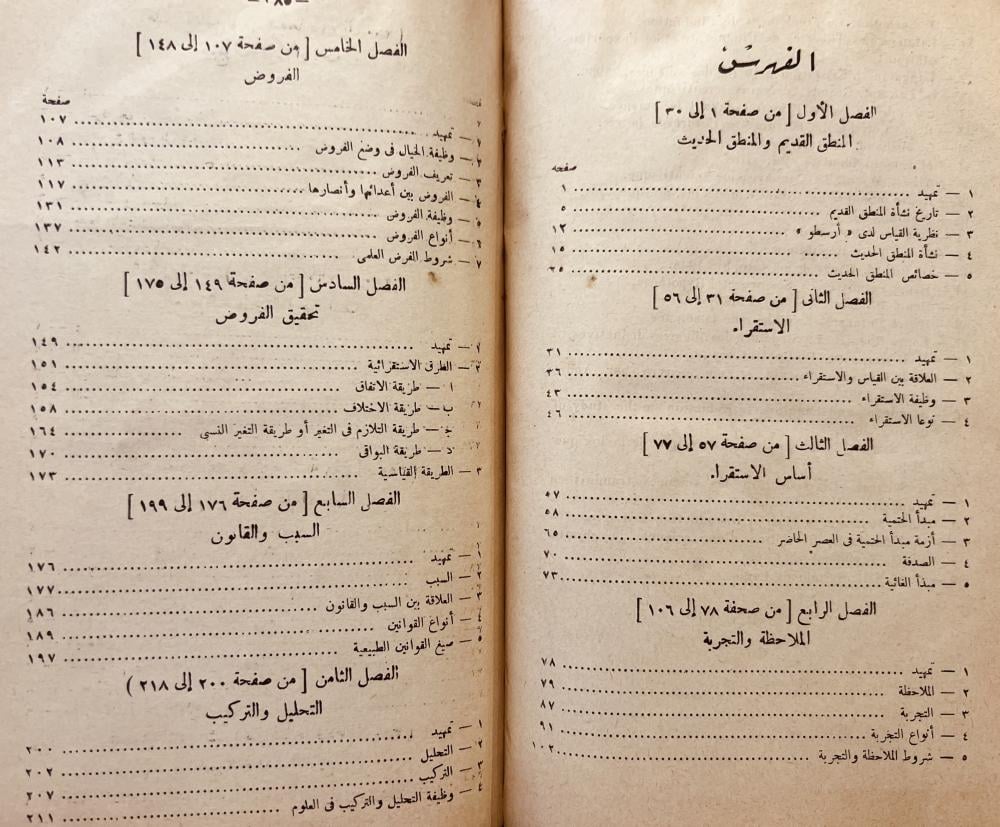 الفهرس
الفصل الأول [ من صفحة ١ إلى ٣٠ ]
المنطق القديم والمنطق الحديث
صفحه
١ — تمهيد ........ ١
٢ — تاريخ نشأة المنطق القديم ........ ٥
٣ — نظرية القياس لدى « أرسطو » ........ ١٢
٤ — نشأة المنطق الحديث ........ ١٥
٥ — خصائص المنطق الحديث ........ ٢٥
الفصل الثانى [ من صفحة ٣١ إلى ٥٦ ]
الاستقراء
١ — تمهيد ........ ٣١
٢ — العلاقة بين القياس والاستقراء ........ ٣٦
٣ — وظيفة الاستقراء ........ ٤٣
٤ — نوعا الاستقراء ........ ٤٦
الفصل الثالث [ من صفحة ٥٧ إلى ٧٧ ]
أساس الاستقراء
١ — تمهيد ........ ٥٧
٢ — مبدأ الحتمية ........ ٥٨
٣ — أزمة مبدأ الحتمية فى العصر الحاضر ........ ٦٥
٤ — الصدفة ........ ٧٠
٥ — مبدأ الغائية ........ ٧٣
الفصل الرابع [ من صحفة ٧٨ إلى ١٠٦ ]
الملاحظة والتجربة
١ — تمهيد ........ ٧٨
٢ — الملاحظة ........ ٧٩
٣ — التجربة ........ ٨٧
٤ — أنواع التجربة ........ ٩١
٥ — شروط الملاحظة والتجربة ........ ١٠٢
الفصل الخامس [ من صفحة ١٠٧ إلى ١٤٨ ]
الفروض
صفحة
١ — تمهيد ........ ١٠٧
٢ — وظيفة الخيال فى وضع الفروض ........ ١٠٨
٣ — تعريف الفروض ........ ١١٣
٤ — الفروض بين أعدائها وأنصارها ........ ١١٧
٥ — وظيفة الفروض ........ ١٣١
٦ — أنواع الفروض ........ ١٣٧
٧ — شروط الفرض العلمى ........ ١٤٢
الفصل السادس [ من صفحة ١٤٩ إلى ١٧٥ ]
تحقيق الفروض
١ — تمهيد ........ ١٤٩
٢ — الطرق الاستقرائية ........ ١٥١
ا — طريقة الاتفاق ........ ١٥٤
ب — طريقة الاختلاف ........ ١٥٨
ج — طريقة التلازم فى التغير أو طريقة التغير النسبى ........ ١٦٤
د — طريقة البواقى ........ ١٧٠
٣ — الطريقة القياسية ........ ١٧٣
الفصل السابع [ من صفحة ١٧٦ إلى ١٩٩ ]
السبب والقانون
١ — تمهيد ........ ١٧٦
٢ — السبب ........ ١٧٧
٣ — العلاقة بين السبب والقانون ........ ١٨٦
٤ — أنواع القوانين ........ ١٨٩
٥ — صيغ القوانين الطبيعية ........ ١٩٧
الفصل الثامن [ من صفحة ٢٠٠ إلى ٢١٨ )
التحليل والتركيب
١ — تمهيد ........ ٢٠٠
٢ — التحليل ........ ٢٠٢
٣ — التركيب ........ ٢٠٧
٤ — وظيفة التحليل والتركيب فى العلوم ........ ٢١١